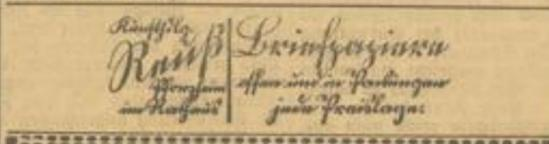 Kunsthdlg.
Reuß
Pforzheim
im Rathaus
Briefpapiere
offen und in Packungen
jede Preislage: